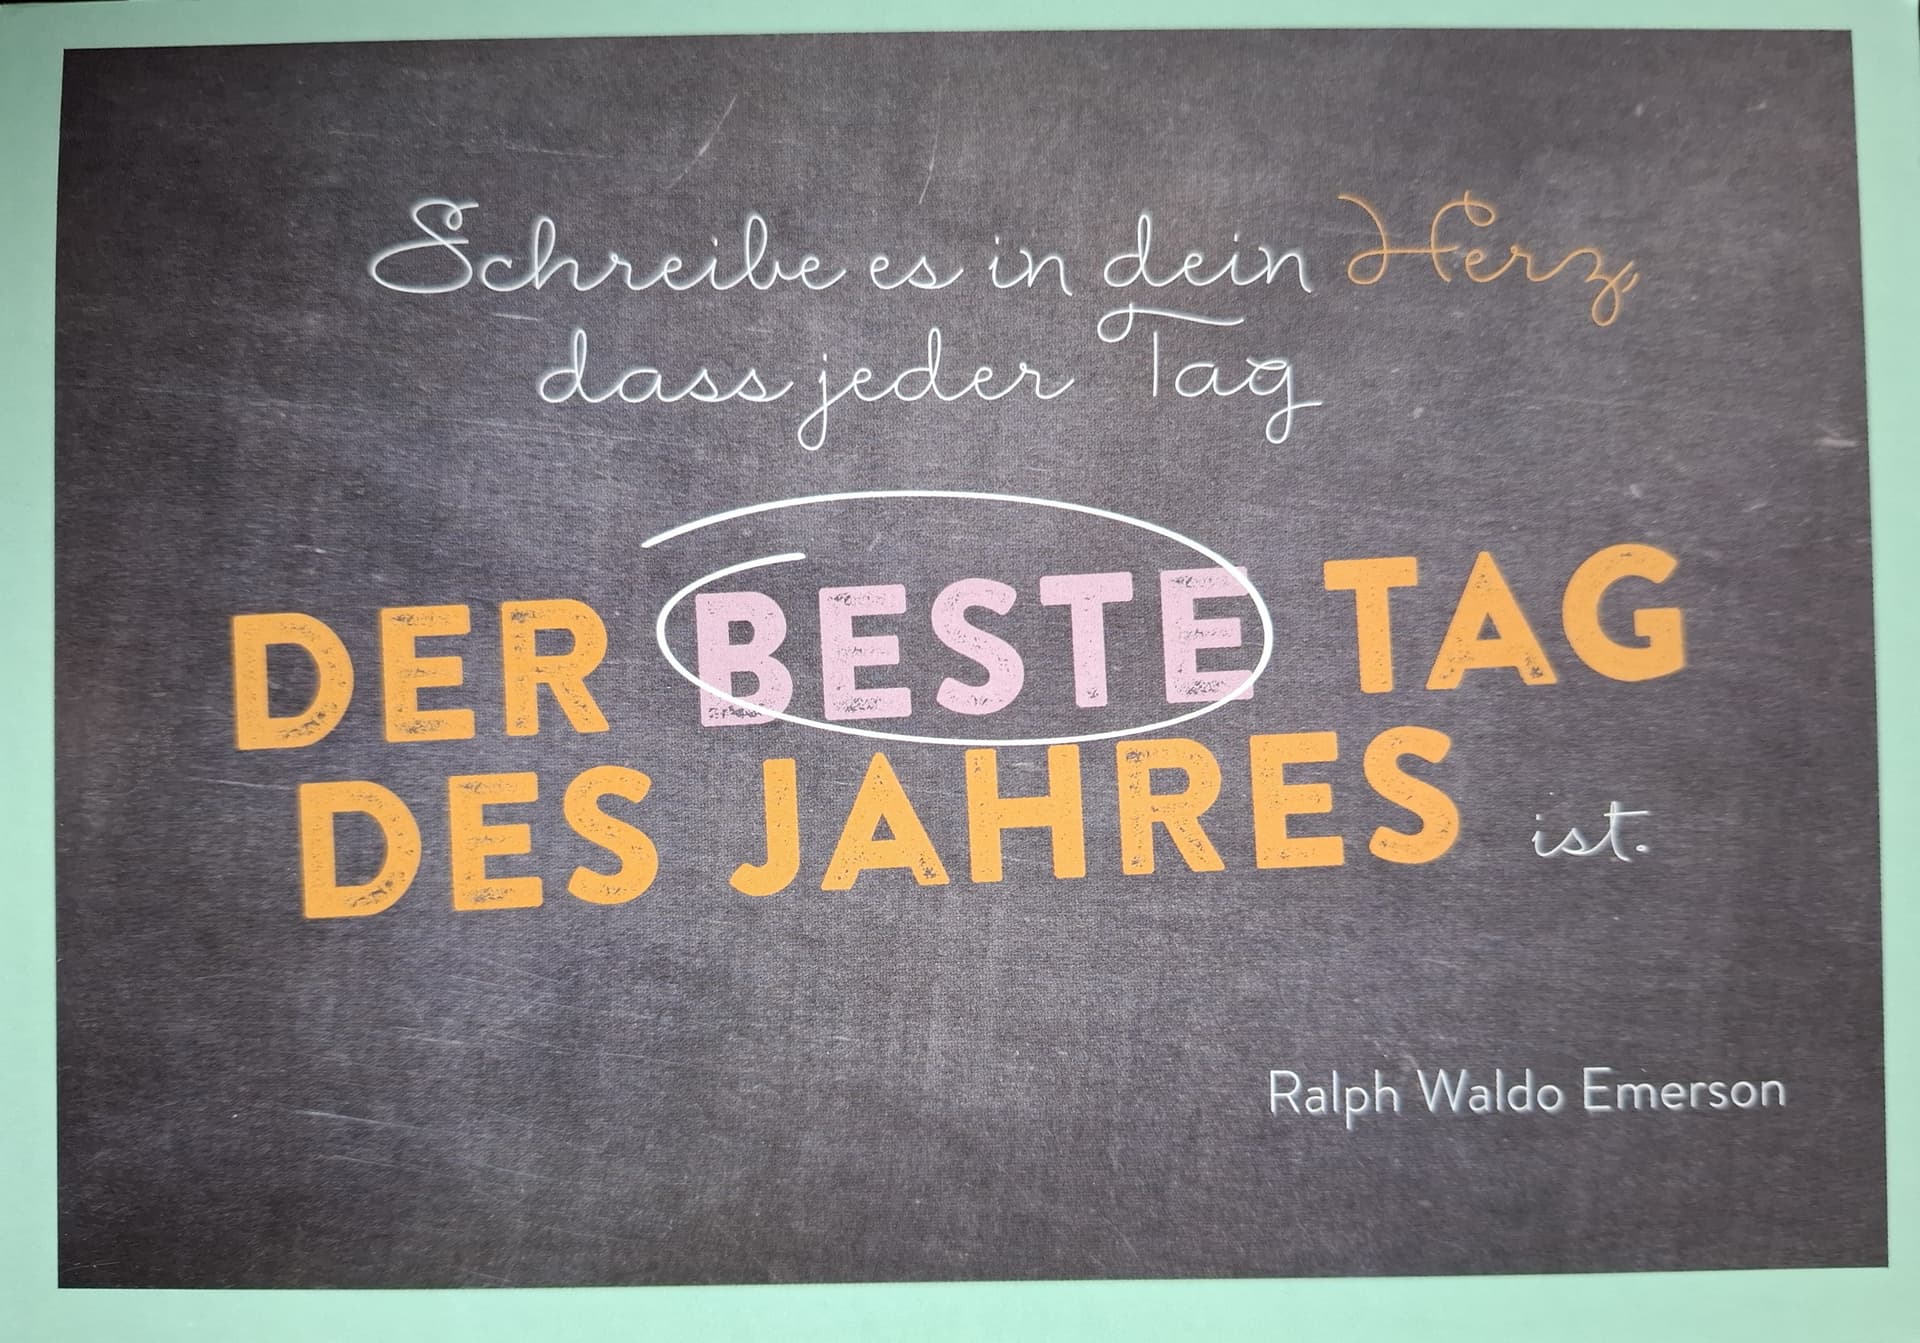 Schreibe es in dein Herz,
dass jeder Tag
DER BESTE TAG
DES JAHRES ist.
Ralph Waldo Emerson